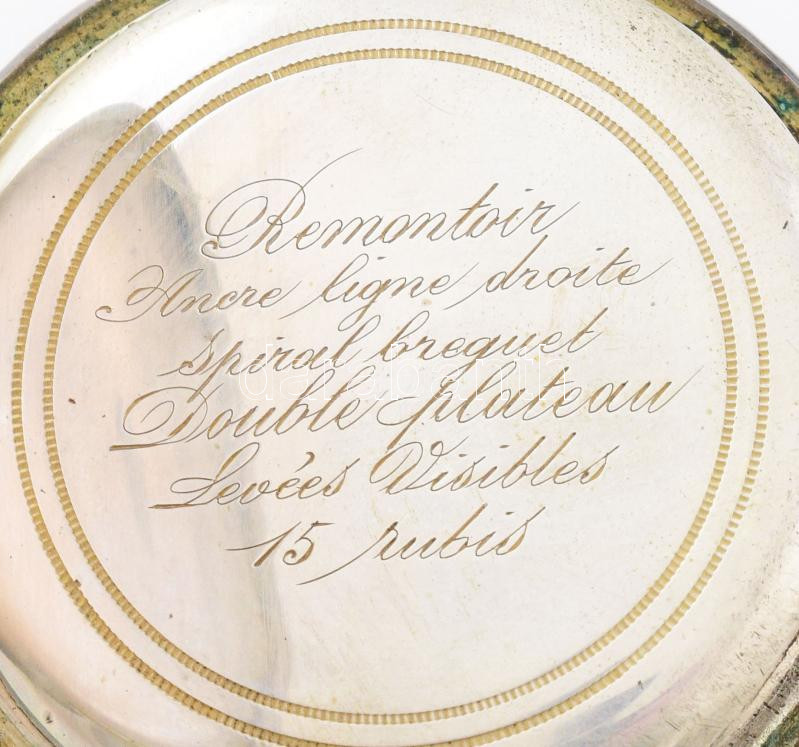 Remontoir
Ancre ligne droite
spiral breguet
Double plateau
Levées Visibles
15 rubis